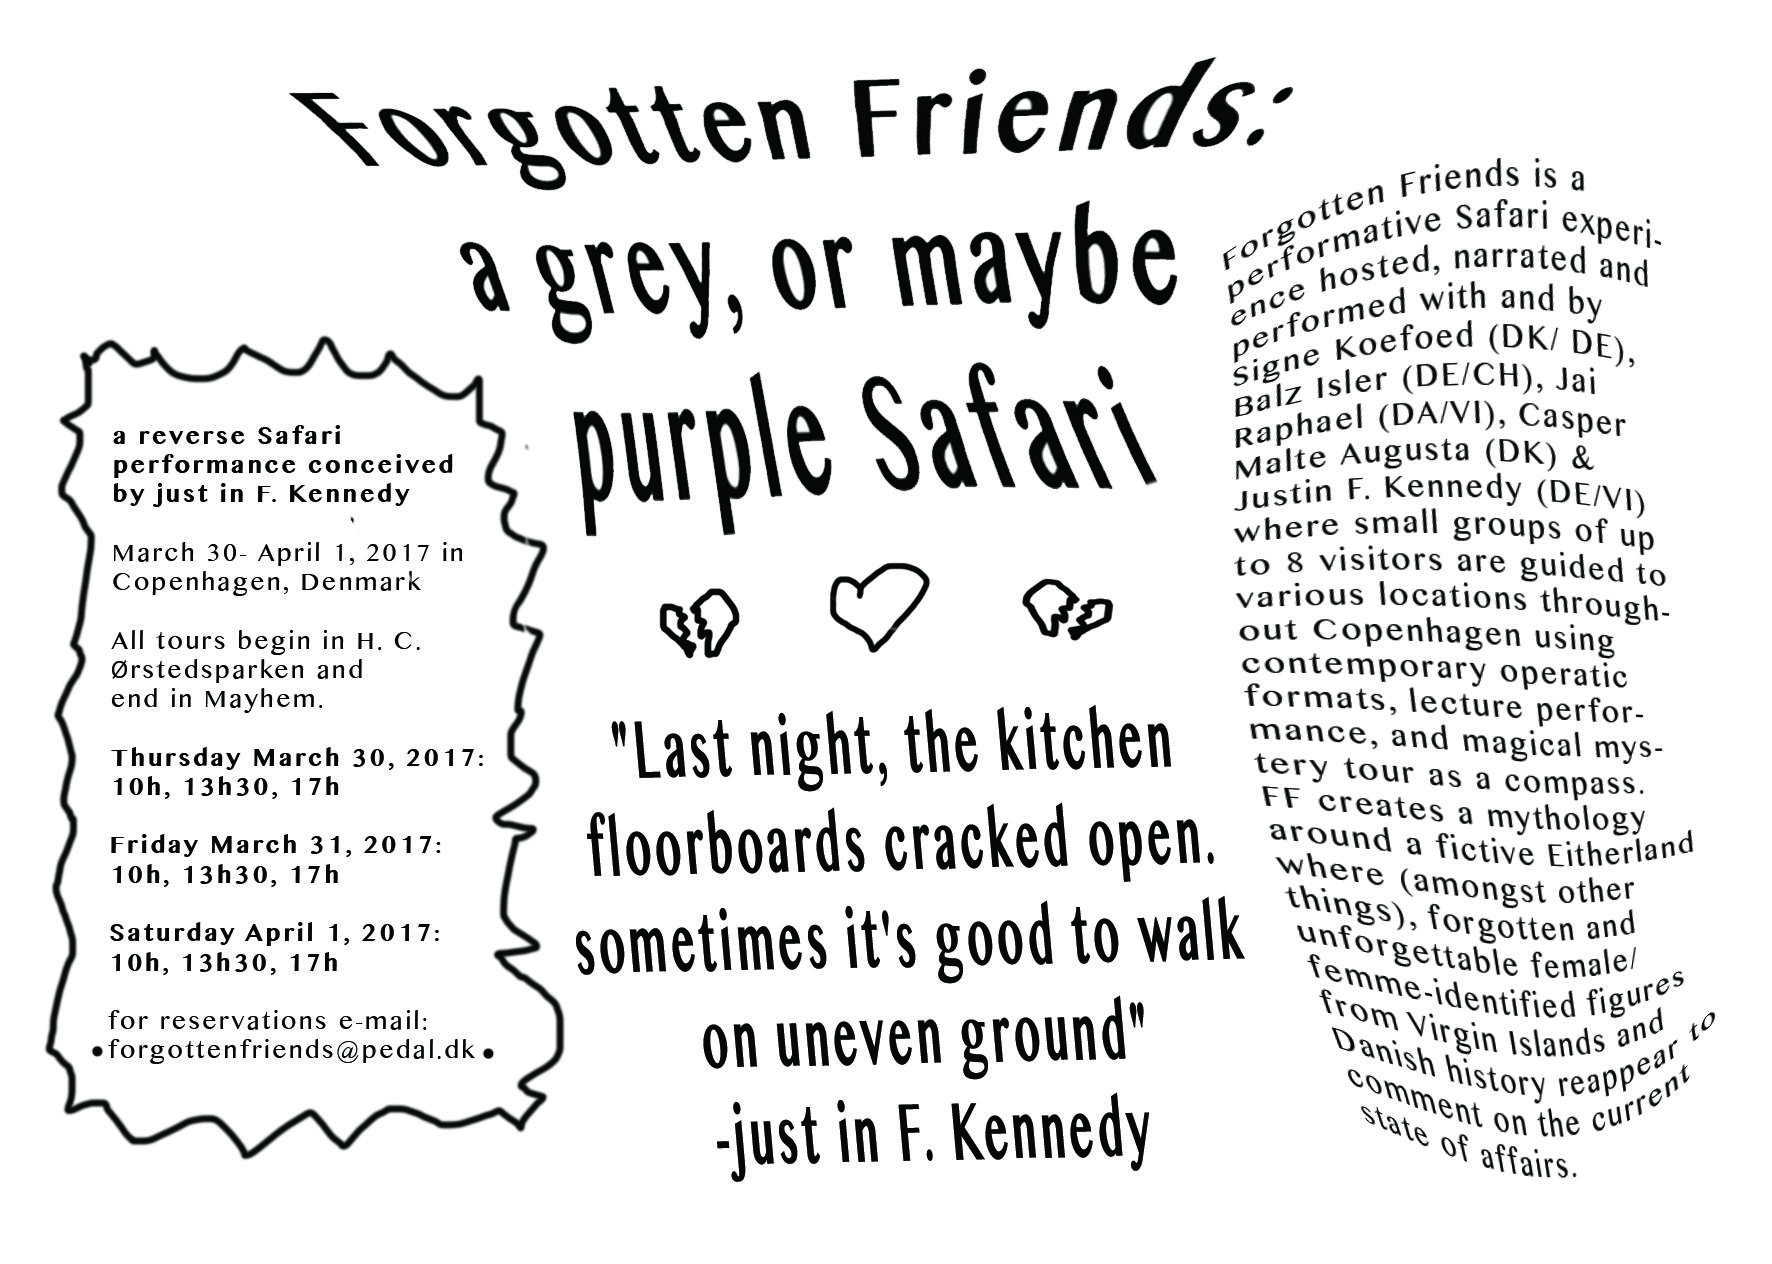 Forgotten Friends:
a grey, or maybe
purple Safari
a reverse Safari
performance conceived
by just in F. Kennedy
March 30- April 1, 2017 in
Copenhagen, Denmark
All tours begin in H. C.
Ørstedsparken and
end in Mayhem.
Thursday March 30, 2017:
10h, 13h30, 17h
Friday March 31, 2017:
10h, 13h30, 17h
Saturday April 1, 2017:
10h, 13h30, 17h
for reservations e-mail:
•forgottenfriends@pedal.dk•
"Last night, the kitchen
floorboards cracked open.
sometimes it's good to walk
on uneven ground"
-just in F. Kennedy
Forgotten Friends is a
performative Safari experi-
ence hosted, narrated and
performed with and by
Signe Koefoed (DK/ DE),
Balz Isler (DE/CH), Jai
Raphael (DA/VI), Casper
Malte Augusta (DK) &
Justin F. Kennedy (DE/VI)
where small groups of up
to 8 visitors are guided to
various locations through-
out Copenhagen using
contemporary operatic
formats, lecture perfor-
mance, and magical mys-
tery tour as a compass.
FF creates a mythology
around a fictive Eitherland
where (amongst other
things), forgotten and
unforgettable female/
femme-identified figures
from Virgin Islands and
Danish history reappear to
comment on the current
state of affairs.